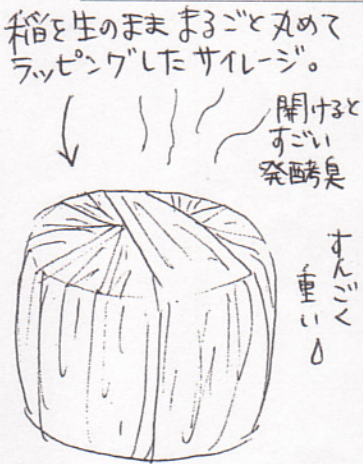 稲を生のまま まるごと丸めて
ラッピングしたサイレージ。
開けると
すごい
発酵臭
すんごく
重い